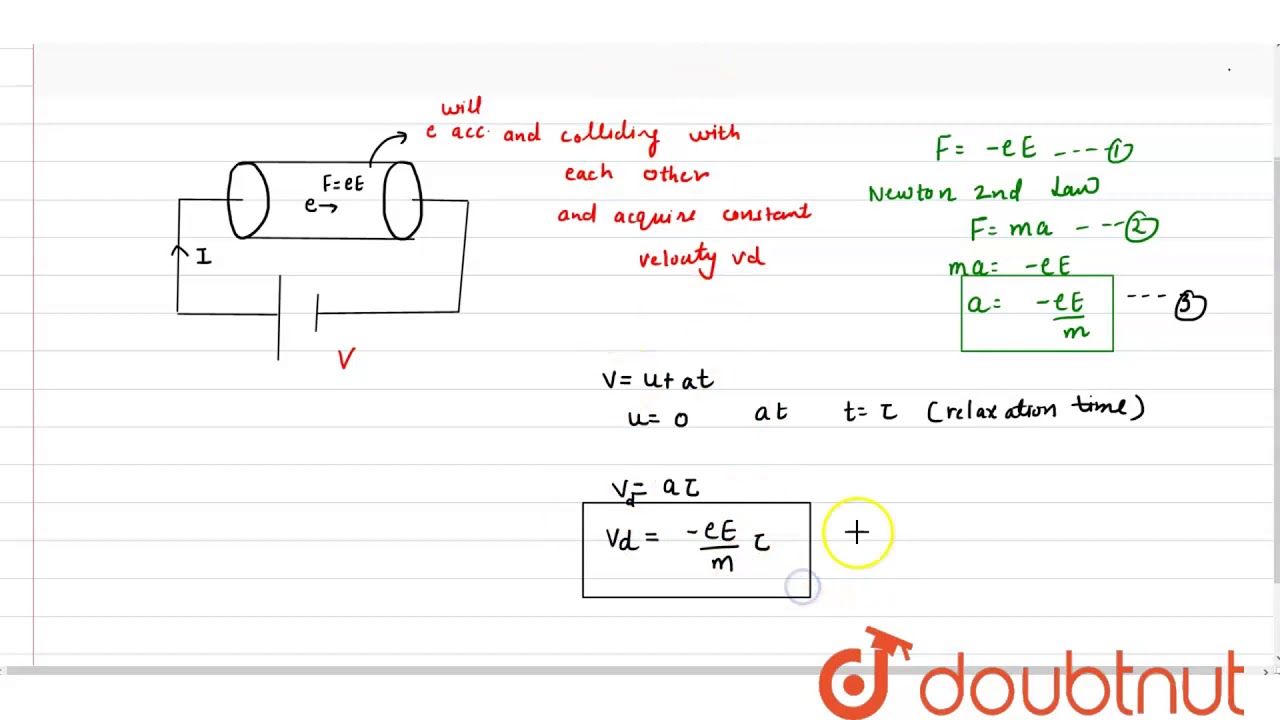 will
e acc. and colliding with
each other
and acquire constant
velouty vd
F=eE
e→
I
V
F= -eE ---- ①
Newton 2nd Law
F= ma - --②
ma= -eE
a= -eE/m --- ③
V= u+at
u= 0 at t= τ (relaxation time)
Vd= aτ
Vd = -eE/m τ
doubtnut